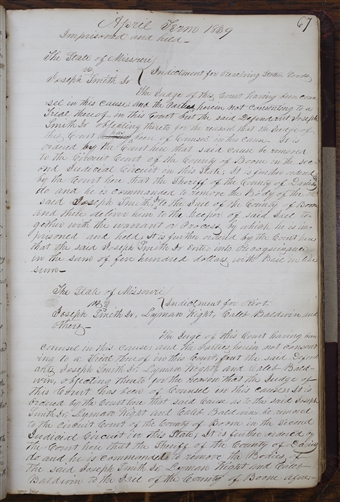 April Term 1839
67
Imprisoned and held—
The State of Missouri
vs
Joseph Smith Jr
Indictment for Receiving Stolen Goods
The Judge of this Court having been coun
sel in this cause and the parties herein not consenting to a
Trial thereof in this Court but the said Defendant Joseph
Smith Jr objecting thereto for the reason that the Judge of
this Court has been of Counsel in this cause. It is
ordered by the Court here that said cause be removed
to the Circuit Court of the County of Boone in the sec
ond Judicial Circuit in this State, It is further ordered
by the Court here that the Sheriff of the County of Davies
do and he is commanded to remove the Body of the
said Joseph Smith Jr to the Jail of the County of Boone
and there deliver him to the keeper of said Jail to
gether with the warrant or Process by which he is im
prisoned and held. It is further ordered by the Court here
that the said Joseph Smith Jr enter into Recognizance
in the sum of five hundred dollars with Bail in like
sum—
The State of Missouri
vs
Indictment for Riot
Joseph Smith Jr, Lyman Wight, Caleb Baldwin and
others
The Judge of this Court having been
counsel in this cause and the parties herein not consent
ing to a Trial thereof in this Court, but the said Defend
ants Joseph Smith Jr, Lyman Wight and Caleb Bald
win, objecting thereto for the reason that the Judge of
this Court has been of Counsel in this cause. It is
ordered by the Court here that said cause as to the said Joseph
Smith Jr Lyman Wight and Caleb Baldwin be removed
to the Circuit Court of the County of Boone in the Second
Judicial Circuit in this State, It is further ordered by
the Court here that the Sheriff of the County of Davies
do and he is commanded to remove the Bodies of
the said Joseph Smith Jr Lyman Wight and Caleb
Baldwin to the Jail of the County of Boone